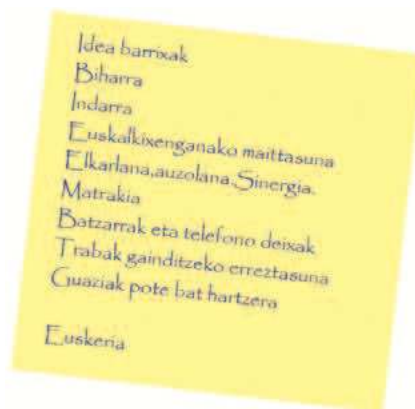 Idea barrixak
Biharra
Indarra
Euskalkixenganako maittasuna
Elkarlana,auzolana.Sinergia.
Matrakia
Batzarrak eta telefono deixak
Trabak gainditzeko erreztasuna
Guaziak pote bat hartzera
Euskeria